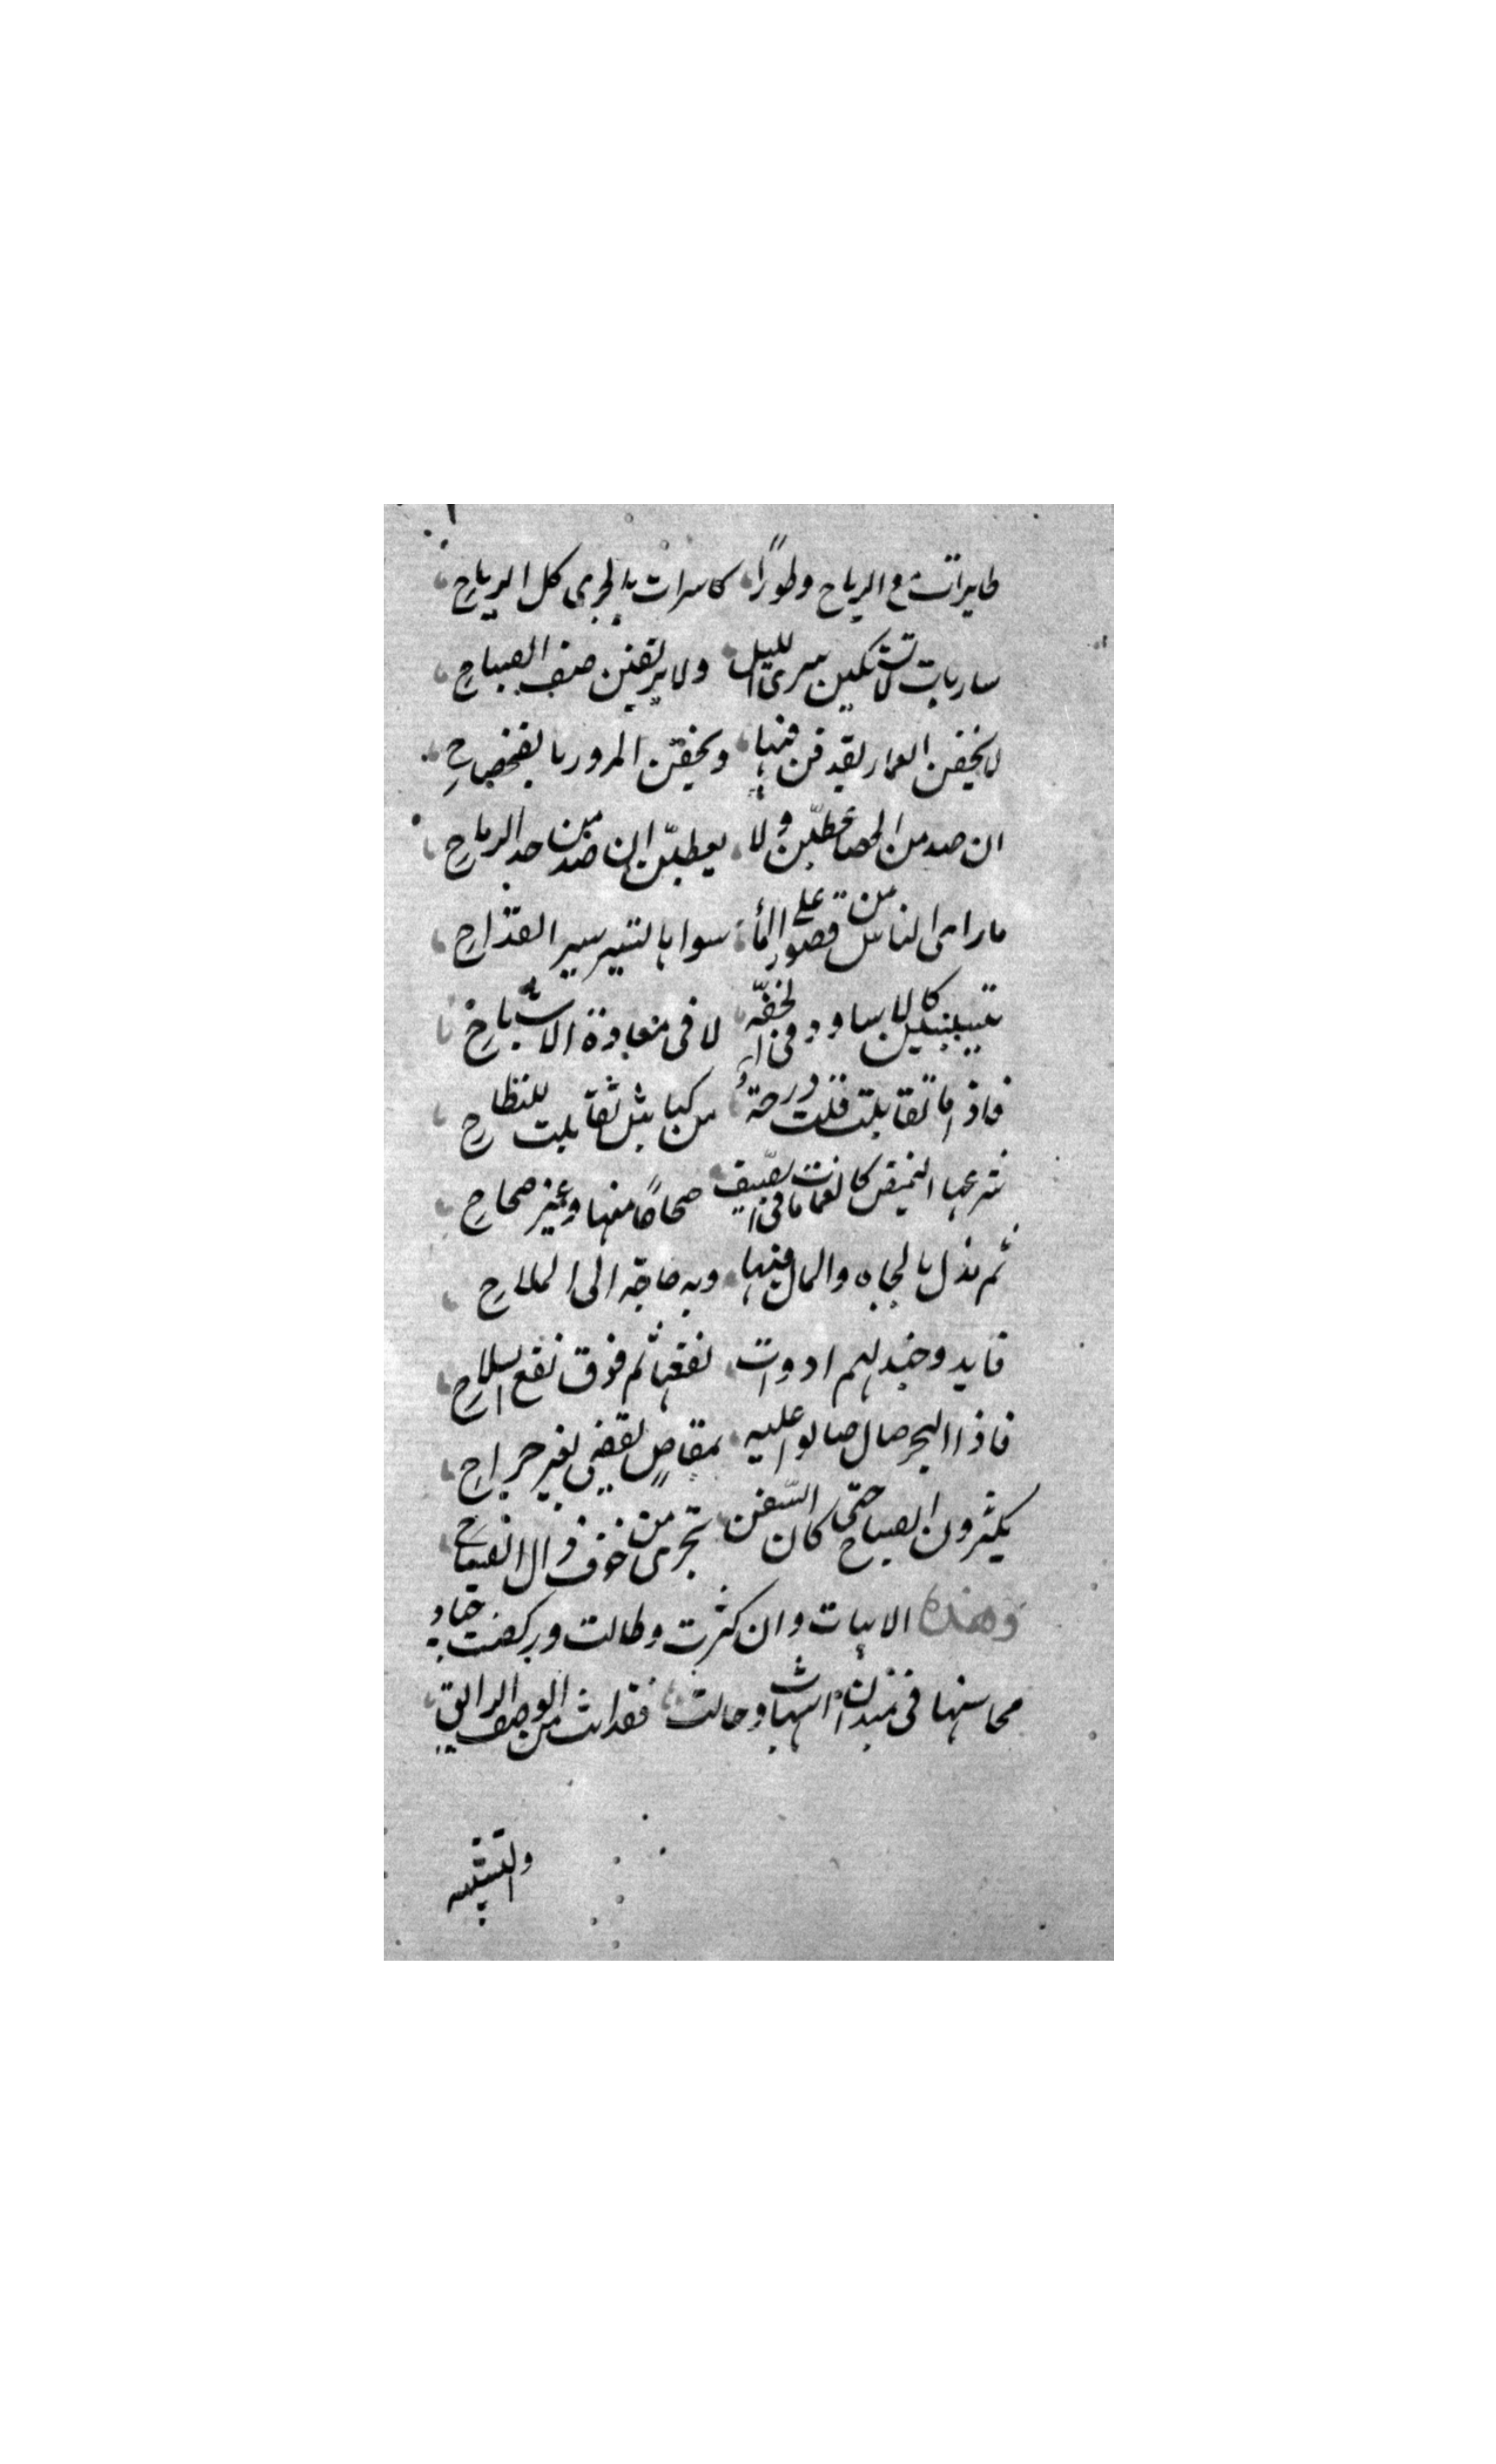 طايرات مع الرياح وطورًا كاسرات بالجرى كل الرياح
ساريات لا تشتكين سرى الليل ولا يرتقين ضيف الصباح
لا يخفن الغمار يقذفن فيها ويخفن المرور بالضحضاح
ان صدمن الحصا عطبن ولا يعطبن ان صدمن حد الرماح
ما راى الناس من قصور على الماء سواها تسير سير القداح
كالاساود فى الخفة لا فى الاشباح
فاذا ما تقابلت قلت درحة من كباش تقابلت للنطاح
شرعها البيض كالغمامات فى الصيف صحاحًا منها وغير صحاح
ثم نذل بالجاه والمال فيها وبه حاجة الى الملاح
قايد وجند لهم ادوات نفعها ثم فوق نفع السلاح
فاذا البحر صال صالوا عليه بمقاص تقضى بغير جراح
يكثرون الصياح حتى كان السفن تجرى من خوف ذاك الصياح
وهذه الابيات وان كثرت وطالت وركضت جياد
محاسنها فى ميدان وجالت فقد اتت من الوصف الرايق
والتشبيه